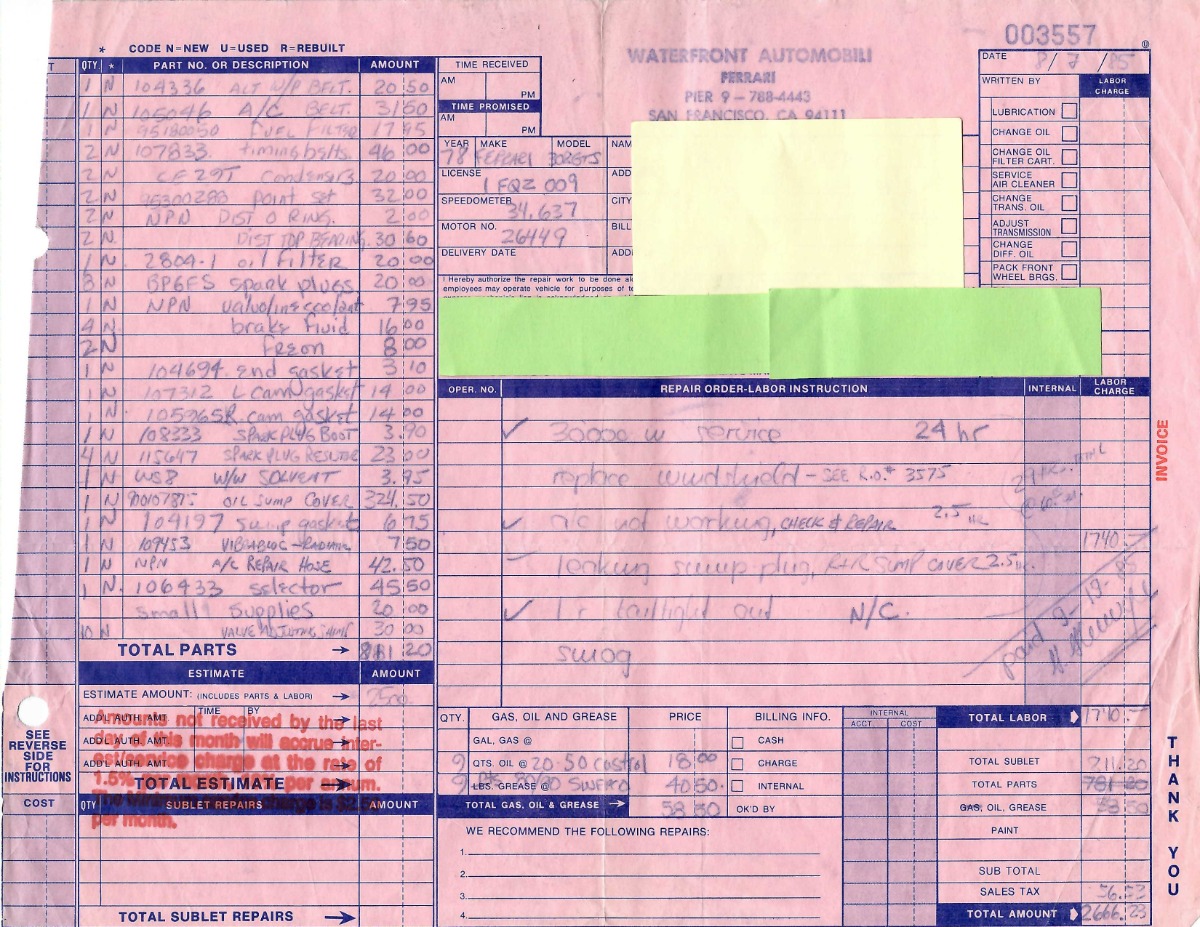 003557
* CODE N=NEW U=USED R=REBUILT
QTY. * PART NO. OR DESCRIPTION AMOUNT
1 N 104336 ALT W/P BELT. 20 50
1 N 105046 A/C BELT. 31 50
1 N 95180050 FUEL FILTER 17 95
2 N 107833 timing belts. 46 00
2 N CE 29T Condensers 20 00
2 N 95300288 point set 32 00
2 N NPN DIST O RING. 2 00
2 N DIST TOP BEARING. 30 60
1 N 2804-1 oil filter 20 00
8 N BP6ES spark plugs 20 00
1 N NPN valvoline coolant 7 95
4 N brake fluid 16 00
2 N freon 8 00
1 N 104694 end gasket 3 10
1 N 107312 L cam gasket 14 00
1 N 105965 R. cam gasket 14 00
1 N 108333 SPARK PLUG BOOT 3.90
4 N 115647 SPARK PLUG 23 00
1 N WS8 W/W SOLVENT 3.95
1 N 90107875 OIL SUMP COVER 324.50
1 N 104197 sump gasket 6 75
1 N 109453 7 50
1 N NPN A/C REPAIR HOSE 42.50
1 N. 106433 selector 45 50
small supplies 20 00
10 N VALVE ADJUSTING SHIMS 30 00
TOTAL PARTS → 20
ESTIMATE AMOUNT
ESTIMATE AMOUNT: (INCLUDES PARTS & LABOR) →
TIME BY
ADD'L AUTH. AMT. →
ADD'L AUTH. AMT. →
ADD'L AUTH. AMT. →
TOTAL ESTIMATE →
Amounts not received by the last
day of this month will accrue inter-
est/service charge at the rate of
1.5% per annum.
per month.
QTY SUBLET REPAIRS AMOUNT
TOTAL SUBLET REPAIRS →
SEE
REVERSE
SIDE
FOR
INSTRUCTIONS
COST
WATERFRONT AUTOMOBILI
FERRARI
PIER 9 – 788-4443
SAN FRANCISCO, CA 94111
TIME RECEIVED
AM PM
TIME PROMISED
AM PM
YEAR MAKE MODEL NAM
78 FERRARI 308GTS
LICENSE ADD
1 FQZ 009
SPEEDOMETER CITY
34,637
MOTOR NO. BILL
26449
DELIVERY DATE ADD
I Hereby authorize the repair work to be done al
employees may operate vehicle for purposes of te
DATE 8/ 7 /85
WRITTEN BY LABOR CHARGE
LUBRICATION
CHANGE OIL
CHANGE OIL
FILTER CART.
SERVICE
AIR CLEANER
CHANGE
TRANS. OIL
ADJUST
TRANSMISSION
CHANGE
DIFF. OIL
PACK FRONT
WHEEL BRGS.
OPER. NO. REPAIR ORDER-LABOR INSTRUCTION INTERNAL LABOR CHARGE
✓ 30000 m service 24 hr
replace windshield – SEE R.O.# 3575
29 HR. TOTAL
✓ a/c not working, CHECK & REPAIR 2.5 HR
1740.-
leaking sump plug, R+R SUMP COVER 2.5
✓ l r taillight out N/C.
smog
paid 9-19-85
INVOICE
QTY. GAS, OIL AND GREASE PRICE
GAL, GAS @
9 QTS. OIL @ 20-50 castrol 18 00
9 LBS. GREASE @ 40 50
TOTAL GAS, OIL & GREASE → 58 50
BILLING INFO.
CASH
CHARGE
INTERNAL
OK'D BY
INTERNAL
ACCT. COST
TOTAL LABOR 1740.-
TOTAL SUBLET
TOTAL PARTS 781 20
GAS, OIL, GREASE 58 50
PAINT
SUB TOTAL
SALES TAX 56.53
TOTAL AMOUNT 2666.23
WE RECOMMEND THE FOLLOWING REPAIRS:
1.
2.
3.
4.
THANK YOU